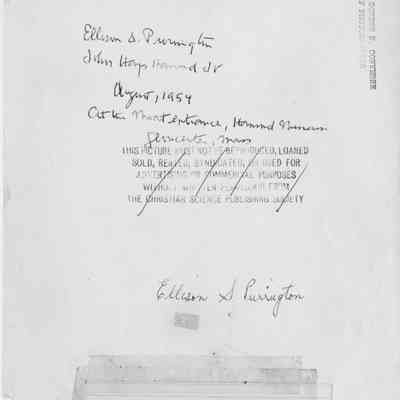 Ellison S. Purrington
John Hays Hammond Jr
August, 1954
At the Moat entrance, Hammond Museum
Gloucester, Mass
THIS PICTURE MUST NOT BE REPRODUCED, LOANED
SOLD, RENTED, SYNDICATED, OR USED FOR
ADVERTISING OR COMMERCIAL PURPOSES
WITHOUT WRITTEN PERMISSION FROM
THE CHRISTIAN SCIENCE PUBLISHING SOCIETY
Ellison S Purrington
GORDON N. CONVERSE